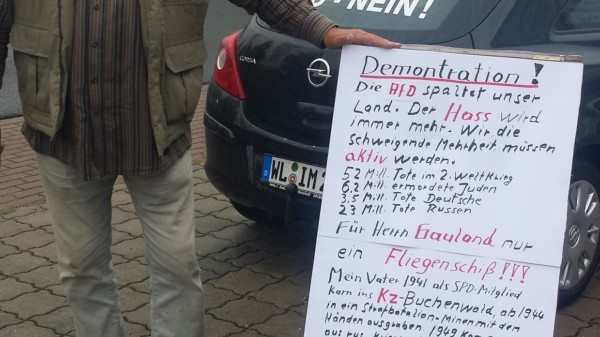 NEIN!
Demontration!
Die AFD spaltet unser
Land. Der Hass wird
immer mehr. Wir die
schweigende Mehrheit müssen
aktiv werden.
52 Mill. Tote im 2. Weltkrieg
6,2 Mill. ermordete Juden
3,5 Mill. Tote Deutsche
23 Mill. Tote Russen
Für Herrn Gauland nur
ein Fliegenschiß!!!
Mein Vater 1941 als SPD-Mitglied
kam ins Kz-Buchenwald, ab 1944
in ein Strafbatalion-Minen mit den
Händen ausgraben. 1949 kam
CORSA
WL IM 2